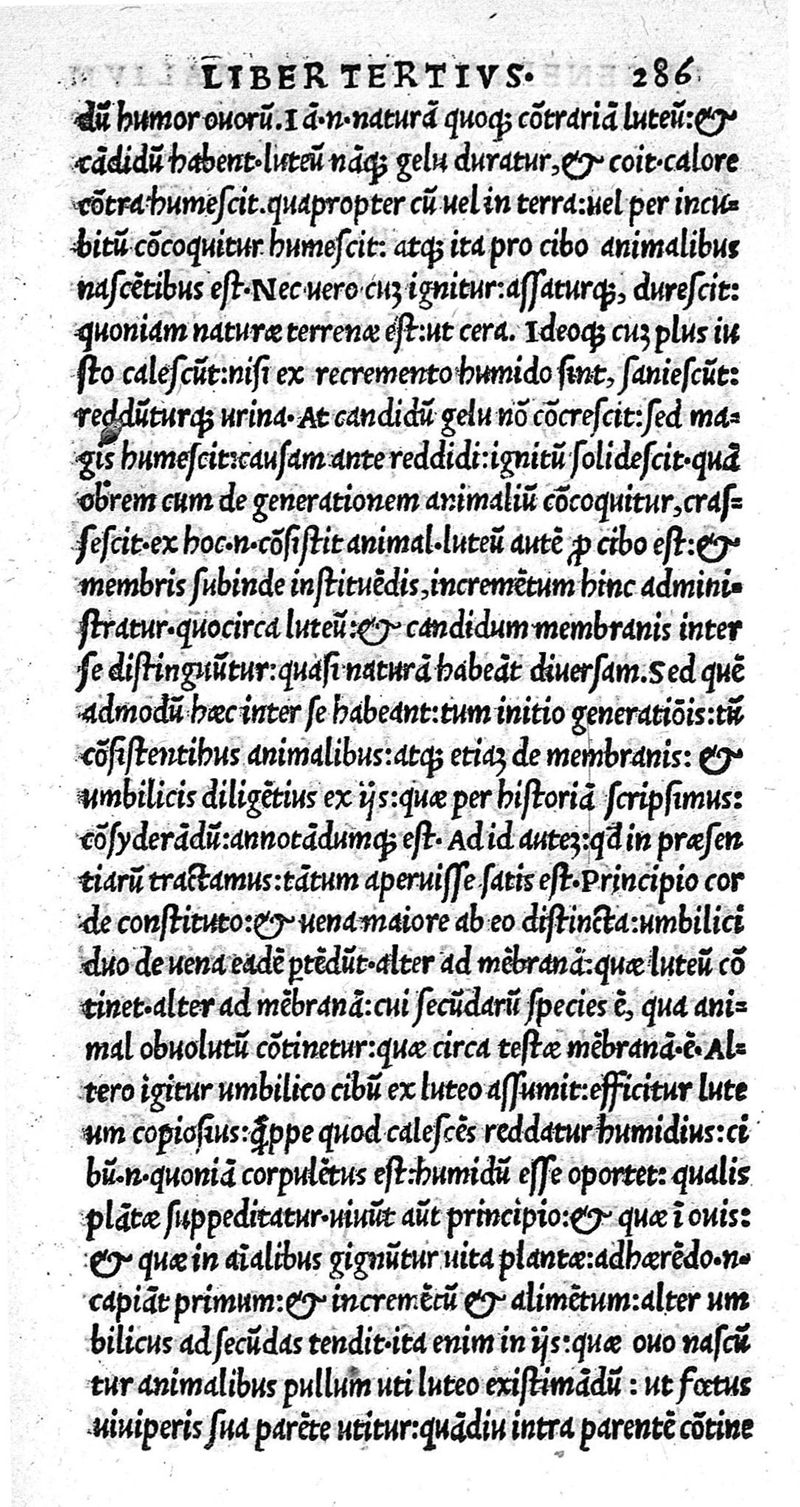 LIBER TERTIVS. 286
dũ humor ouorũ. I ã.n.naturã quoq; cõtrariã luteũ:&
cãdidũ habent.luteũ nãq; gelu duratur,& coit.calore
cõtra humeſcit.quapropter cũ uel in terra:uel per incu=
bitũ cõcoquitur humeſcit: atq; ita pro cibo animalibus
naſcẽtibus eſt.Nec uero cuʒ ignitur:aſſaturq;, dureſcit:
quoniam naturæ terrenæ eſt:ut cera. Ideoq; cuʒ plus iu
ſto caleſcũt:niſi ex recremento humido ſint, ſanieſcũt:
reddũturq; urina.At candidũ gelu nõ cõcreſcit:ſed ma=
gis humeſcit:cauſam ante reddidi:ignitũ ſolideſcit.quã
obrem cum de generationem animaliũ cõcoquitur,craſ=
ſeſcit.ex hoc.n.cõſiſtit animal.luteũ autẽ ꝓ cibo eſt:&
membris ſubinde inſtituẽdis,incremẽtum hinc admini=
ſtratur.quocirca luteũ:& candidum membranis inter
ſe diſtinguũtur:quaſi naturã habeãt diuerſam.Sed quẽ
admodũ hæc inter ſe habeant:tum initio generatiõis:tũ
cõſiſtentibus animalibus:atq; etiaʒ de membranis: &
umbilicis diligẽtius ex ijs:quæ per hiſtoriã ſcripſimus:
cõſyderãdũ:annotãdumq; eſt. Ad id auteʒ:qđ in præſen
tiarũ tractamus:tãtum aperuiſſe ſatis eſt.Principio cor
de conſtituto:& uena maiore ab eo diſtincta:umbilici
duo de uena eadẽ ꝑtẽdũt.alter ad mẽbranã:quæ luteũ cõ
tinet.alter ad mẽbranã:cui ſecũdarũ ſpecies ẽ, qua ani=
mal obuolutũ cõtinetur:quæ circa teſtæ mẽbranã.ẽ.Al=
tero igitur umbilico cibũ ex luteo aſſumit:efficitur lute
um copioſius:q̃ppe quod caleſcẽs reddatur humidius:ci
bũ.n.quoniã corpulẽtus eſt:humidũ eſſe oportet: qualis
plãtæ ſuppeditatur.uiuũt aũt principio:& quæ ĩ ouis:
& quæ in aĩalibus gignũtur uita plantæ:adhærẽdo.n.
capiãt primum:& incremẽtũ & alimẽtum:alter um
bilicus ad ſecũdas tendit.ita enim in ijs:quæ ouo naſcũ
tur animalibus pullum uti luteo exiſtimãdũ : ut fœtus
uiuiperis ſua parẽte utitur:quãdiu intra parentẽ cõtine